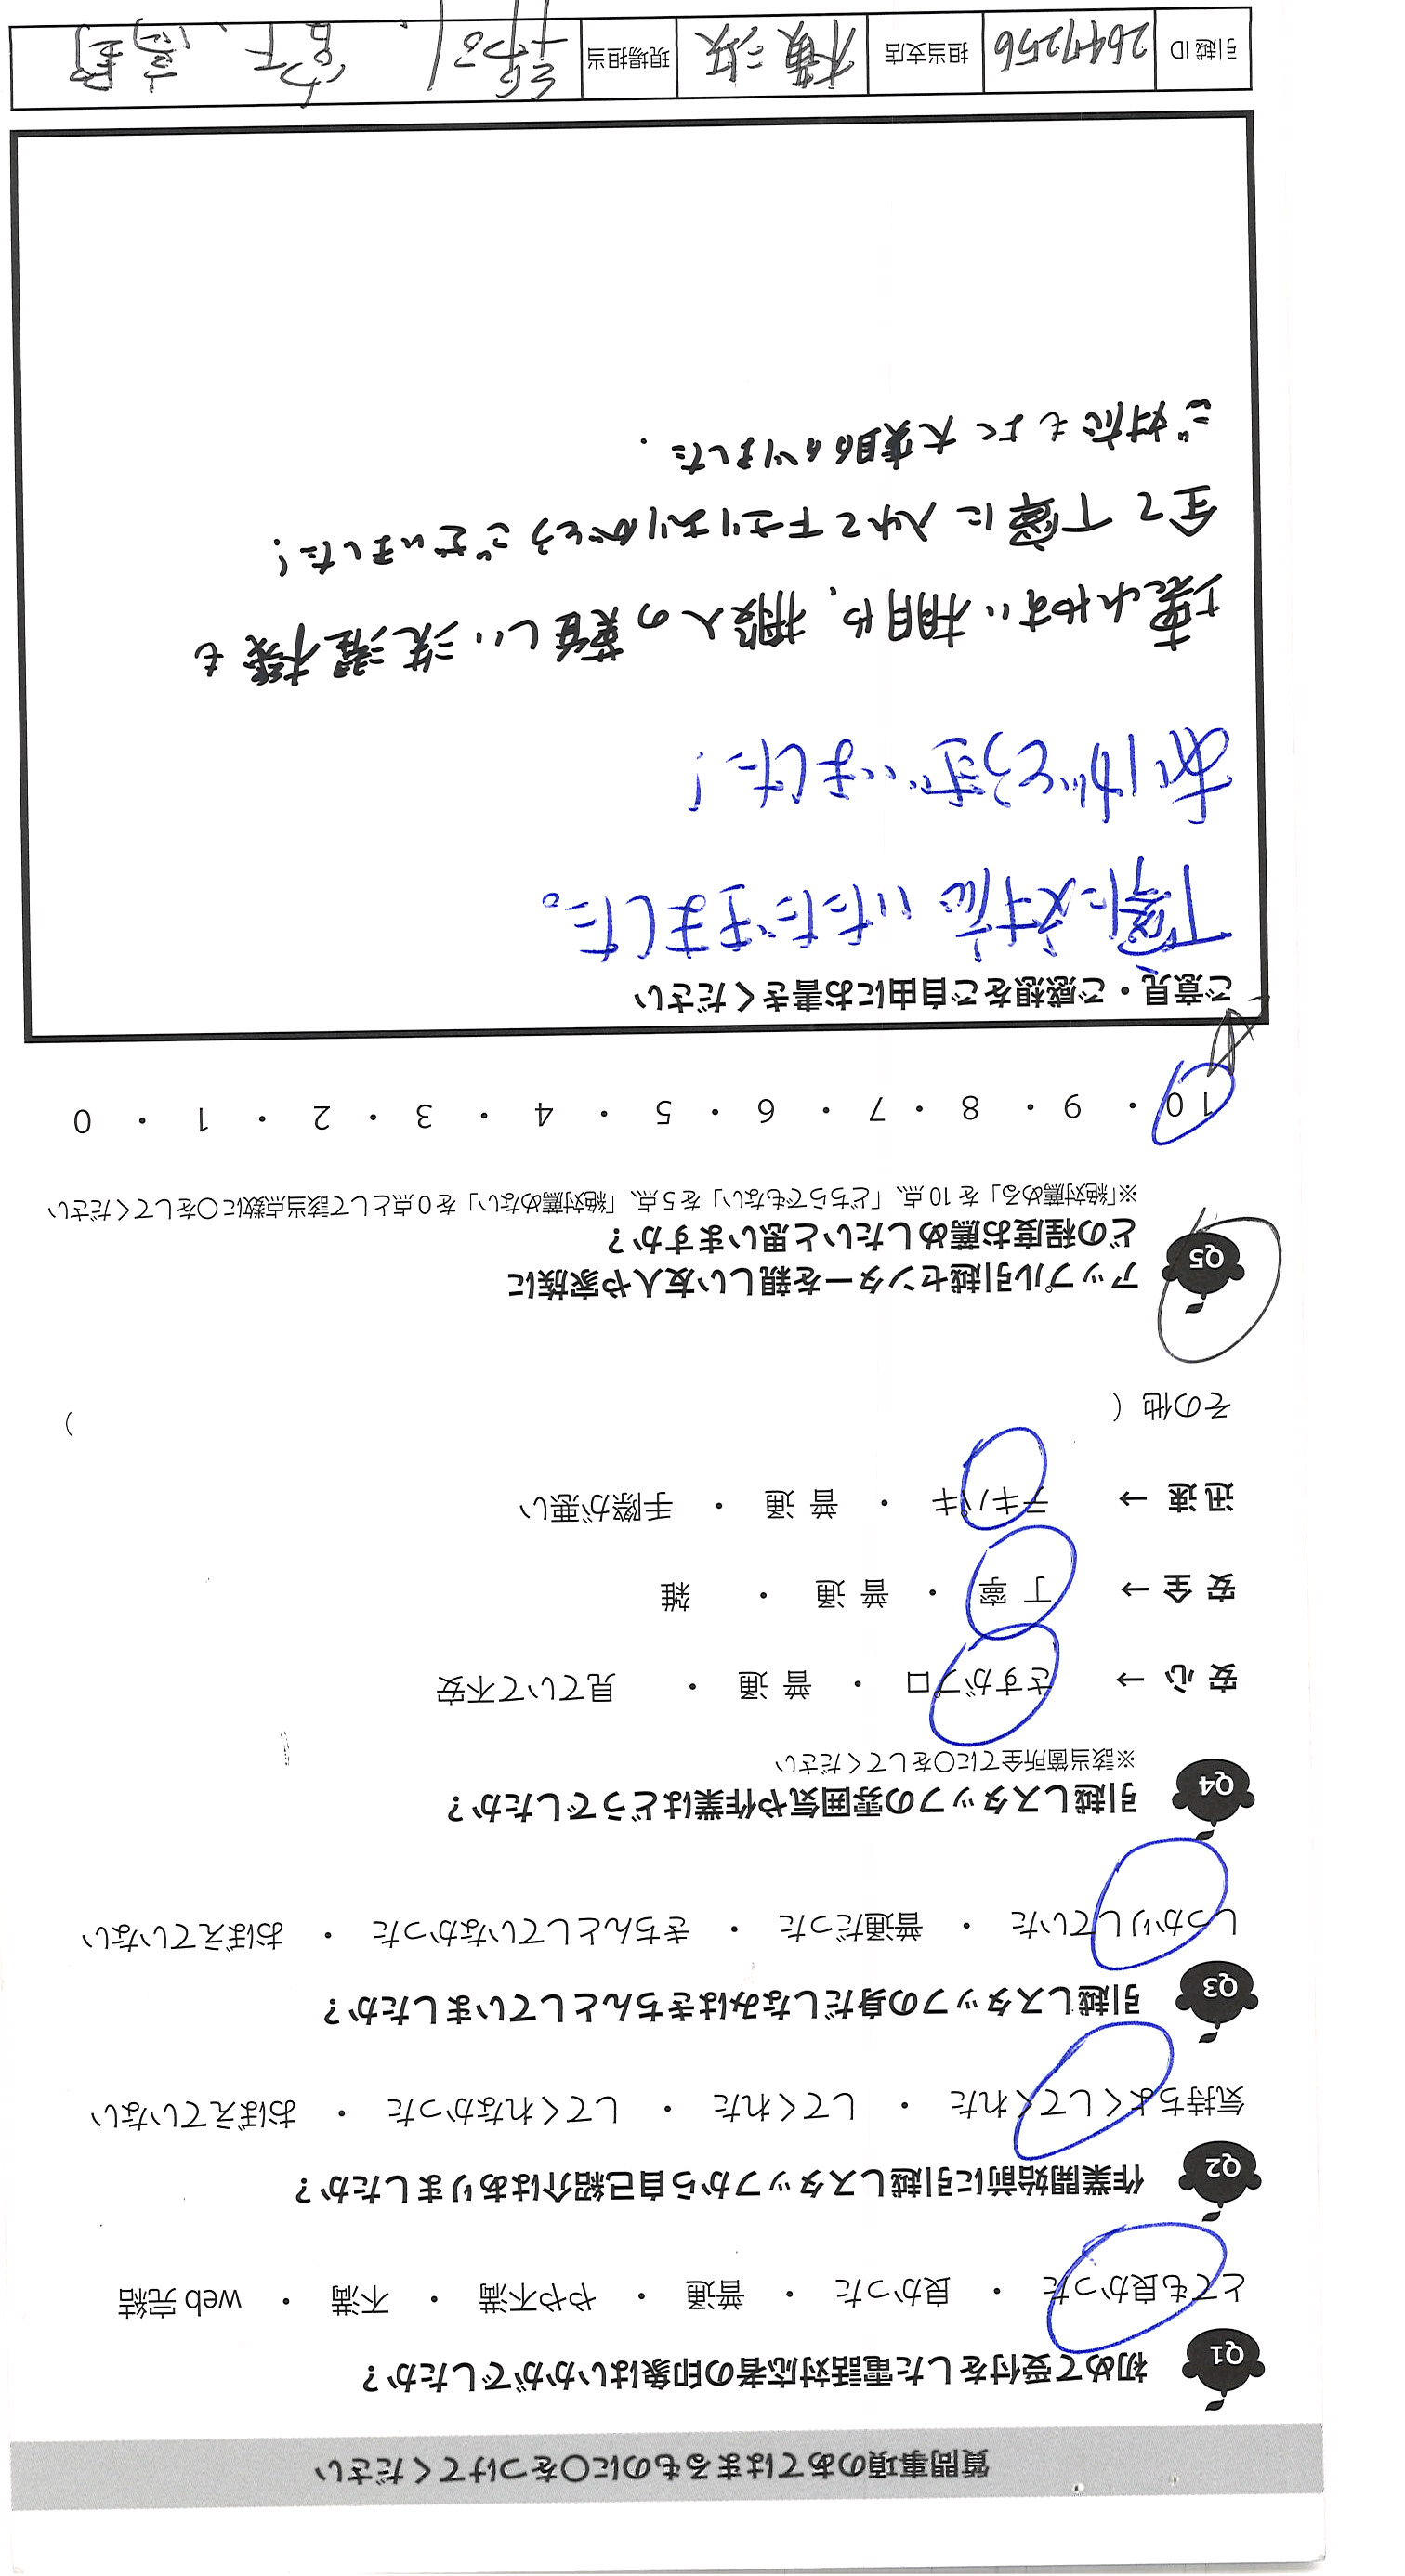 質問事項のあてはまるものに○をつけてください
Q1 初めて受付をした電話対応者の印象はいかがでしたか？
とても良かった ・ 良かった ・ 普通 ・ やや不満 ・ 不満 ・ web 完結
Q2 作業開始前に引越しスタッフから自己紹介はありましたか？
気持ちよくしてくれた ・ してくれた ・ してくれなかった ・ おぼえていない
Q3 引越しスタッフの身だしなみはきちんとしていましたか？
しっかりしていた ・ 普通だった ・ きちんとしていなかった ・ おぼえていない
Q4 引越しスタッフの雰囲気や作業はどうでしたか？
※該当箇所全てに○をしてください
安心 → さすがプロ ・ 普通 ・ 見ていて不安
安全 → 丁寧 ・ 普通 ・ 雑
迅速 → テキパキ ・ 普通 ・ 手際が悪い
その他（ ）
Q5 アップル引越センターを親しい友人や家族に
どの程度お薦めしたいと思いますか？
※「絶対薦める」を 10 点、「どちらでもない」を 5 点、「絶対薦めない」を 0 点として該当点数に○をしてください
10 ・ 9 ・ 8 ・ 7 ・ 6 ・ 5 ・ 4 ・ 3 ・ 2 ・ 1 ・ 0
ご意見・ご感想をご自由にお書きください
丁寧に対応いただきました。
ありがとうございました！
壊れやすい棚や、搬入の難しい洗濯機も
全て丁寧に入れて下さりありがとうございました！
ご対応もよく大変助かりました．
引越ID 2647256 担当支店 横浜 現場担当 宮下、高野